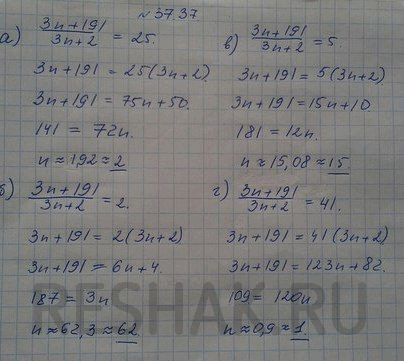 № 37.37
а) (3n+191)/(3n+2) = 25.
3n+191 = 25(3n+2).
3n+191 = 75n+50.
141 = 72n.
n ≈ 1,92 ≈ 2
б) (3n+191)/(3n+2) = 2.
3n+191 = 2(3n+2)
3n+191 = 6n+4.
187 = 3n
n ≈ 62,3 ≈ 62
в) (3n+191)/(3n+2) = 5.
3n+191 = 5(3n+2)
3n+191 = 15n+10.
181 = 12n.
n ≈ 15,08 ≈ 15
г) (3n+191)/(3n+2) = 41.
3n+191 = 41(3n+2)
3n+191 = 123n+82.
109 = 120n
n ≈ 0,9 ≈ 1
RESHAK.RU